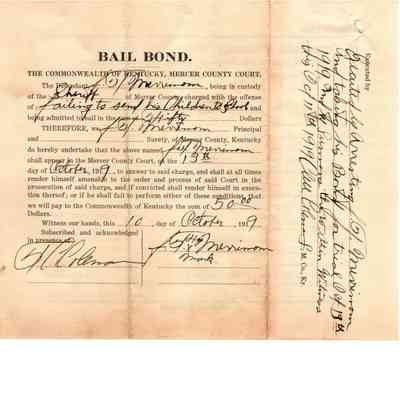 BAIL BOND.
THE COMMONWEALTH OF KENTUCKY, MERCER COUNTY COURT.
The Defendant, Merrimon, being in custody
of the Sheriff of Mercer County, charged with the offense
of failing to send his Children to School and
being admitted to bail in the sum of Fifty Dollars
THEREFORE, we, Merrimon Principal
and Surety, of Mercer County, Kentucky,
do hereby undertake that the above named Merrimon
shall appear in the Mercer County Court, on the 13th
day of October, 1919, to answer to said charge, and shall at all times
render himself amenable to the order and process of said Court in the
prosecution of said charge, and if convicted shall render himself in execu-
tion thereof; or if he shall fail to perform either of these conditions, that
we will pay to the Commonwealth of Kentucky the sum of 50.00
Dollars.
Witness our hands, this 10 day of October 1919
Subscribed and acknowledged
in presence of Merrimon
Coleman mark
Executed by
Executed by Arresting Merrimon
and Executing Bond for trial Oct 13th
1919 and Witness
this Oct 11th 1919 Coleman M. Co., Ky.